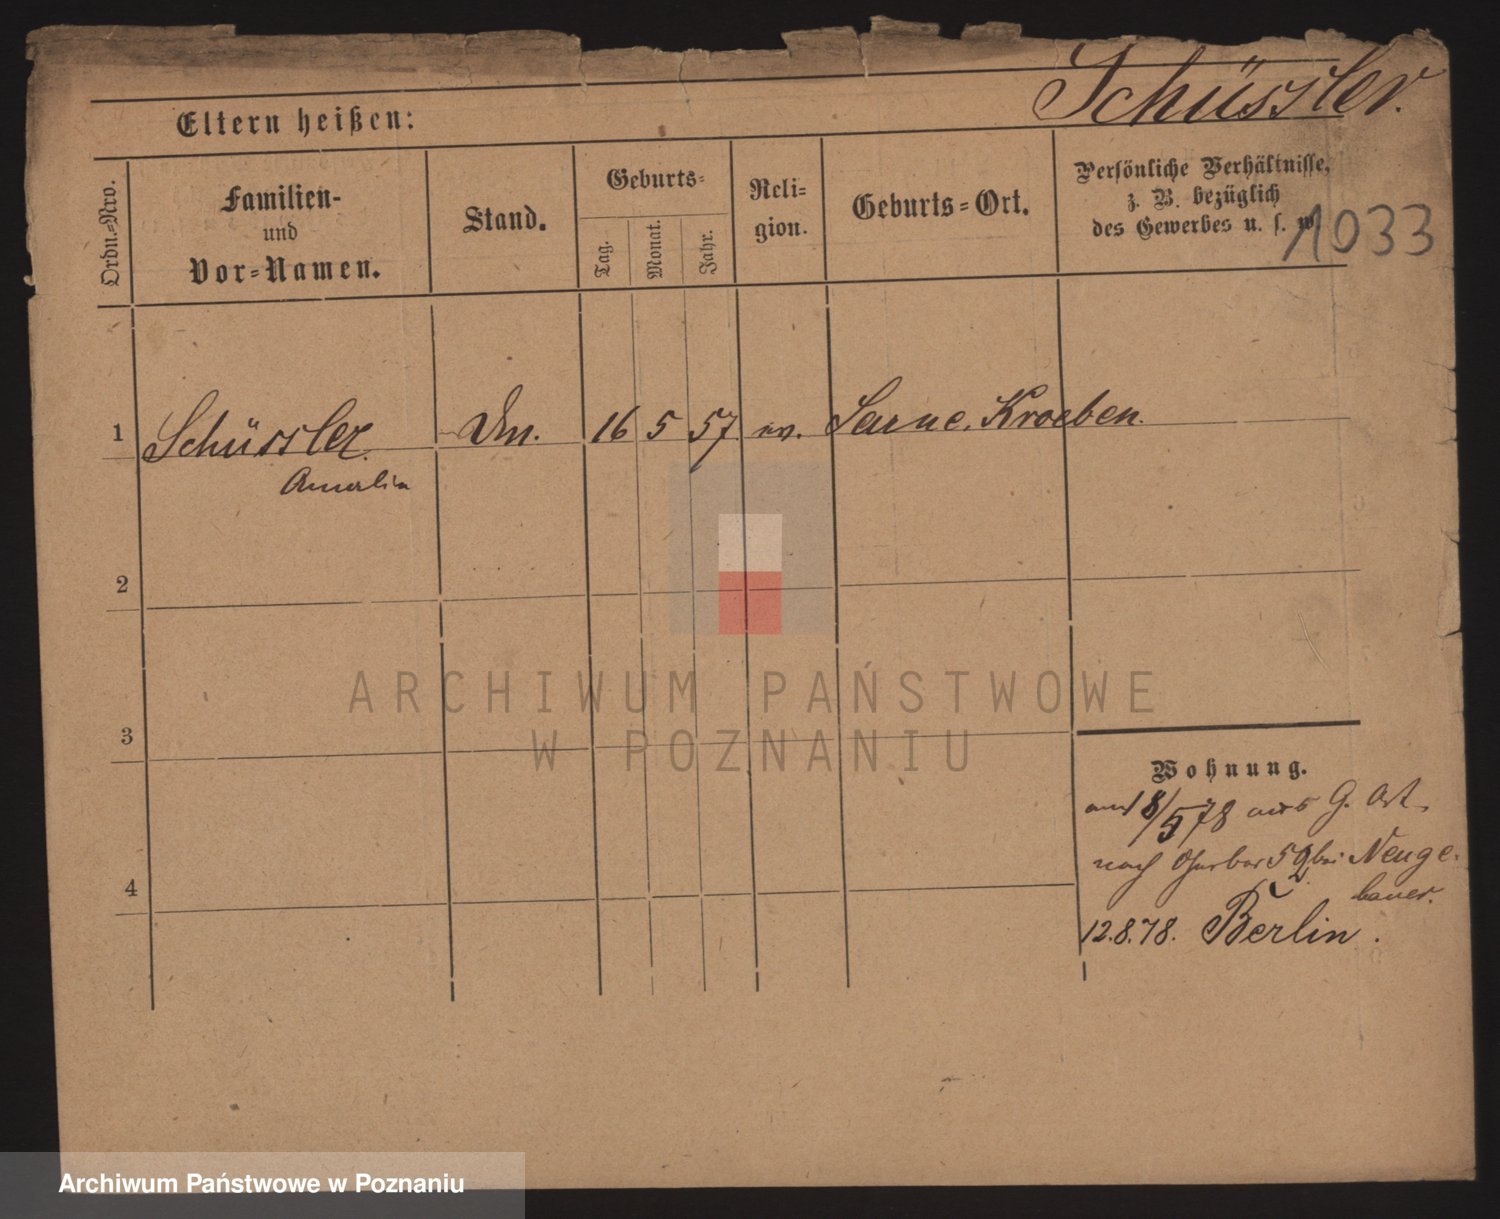 Schüssler.
Eltern heißen:
Ordn.=Nro.
Familien-
und
Vor=Namen.
Stand.
Geburts=
Tag.
Monat.
Jahr.
Reli=
gion.
Geburts=Ort.
Persönliche Verhältnisse,
z. B. bezüglich
des Gewerbes u. s. w.
1033
1 Schüssler. Dm. 16 5 57 ev. Sarne. Kroeben.
Amalia
2
3
4
Wohnung.
18/5 78 aus G. Ort.
nach 52 bei Neuge-
bauer.
12.8.78. Berlin.
ARCHIWUM PAŃSTWOWE
W POZNANIU
Archiwum Państwowe w Poznaniu